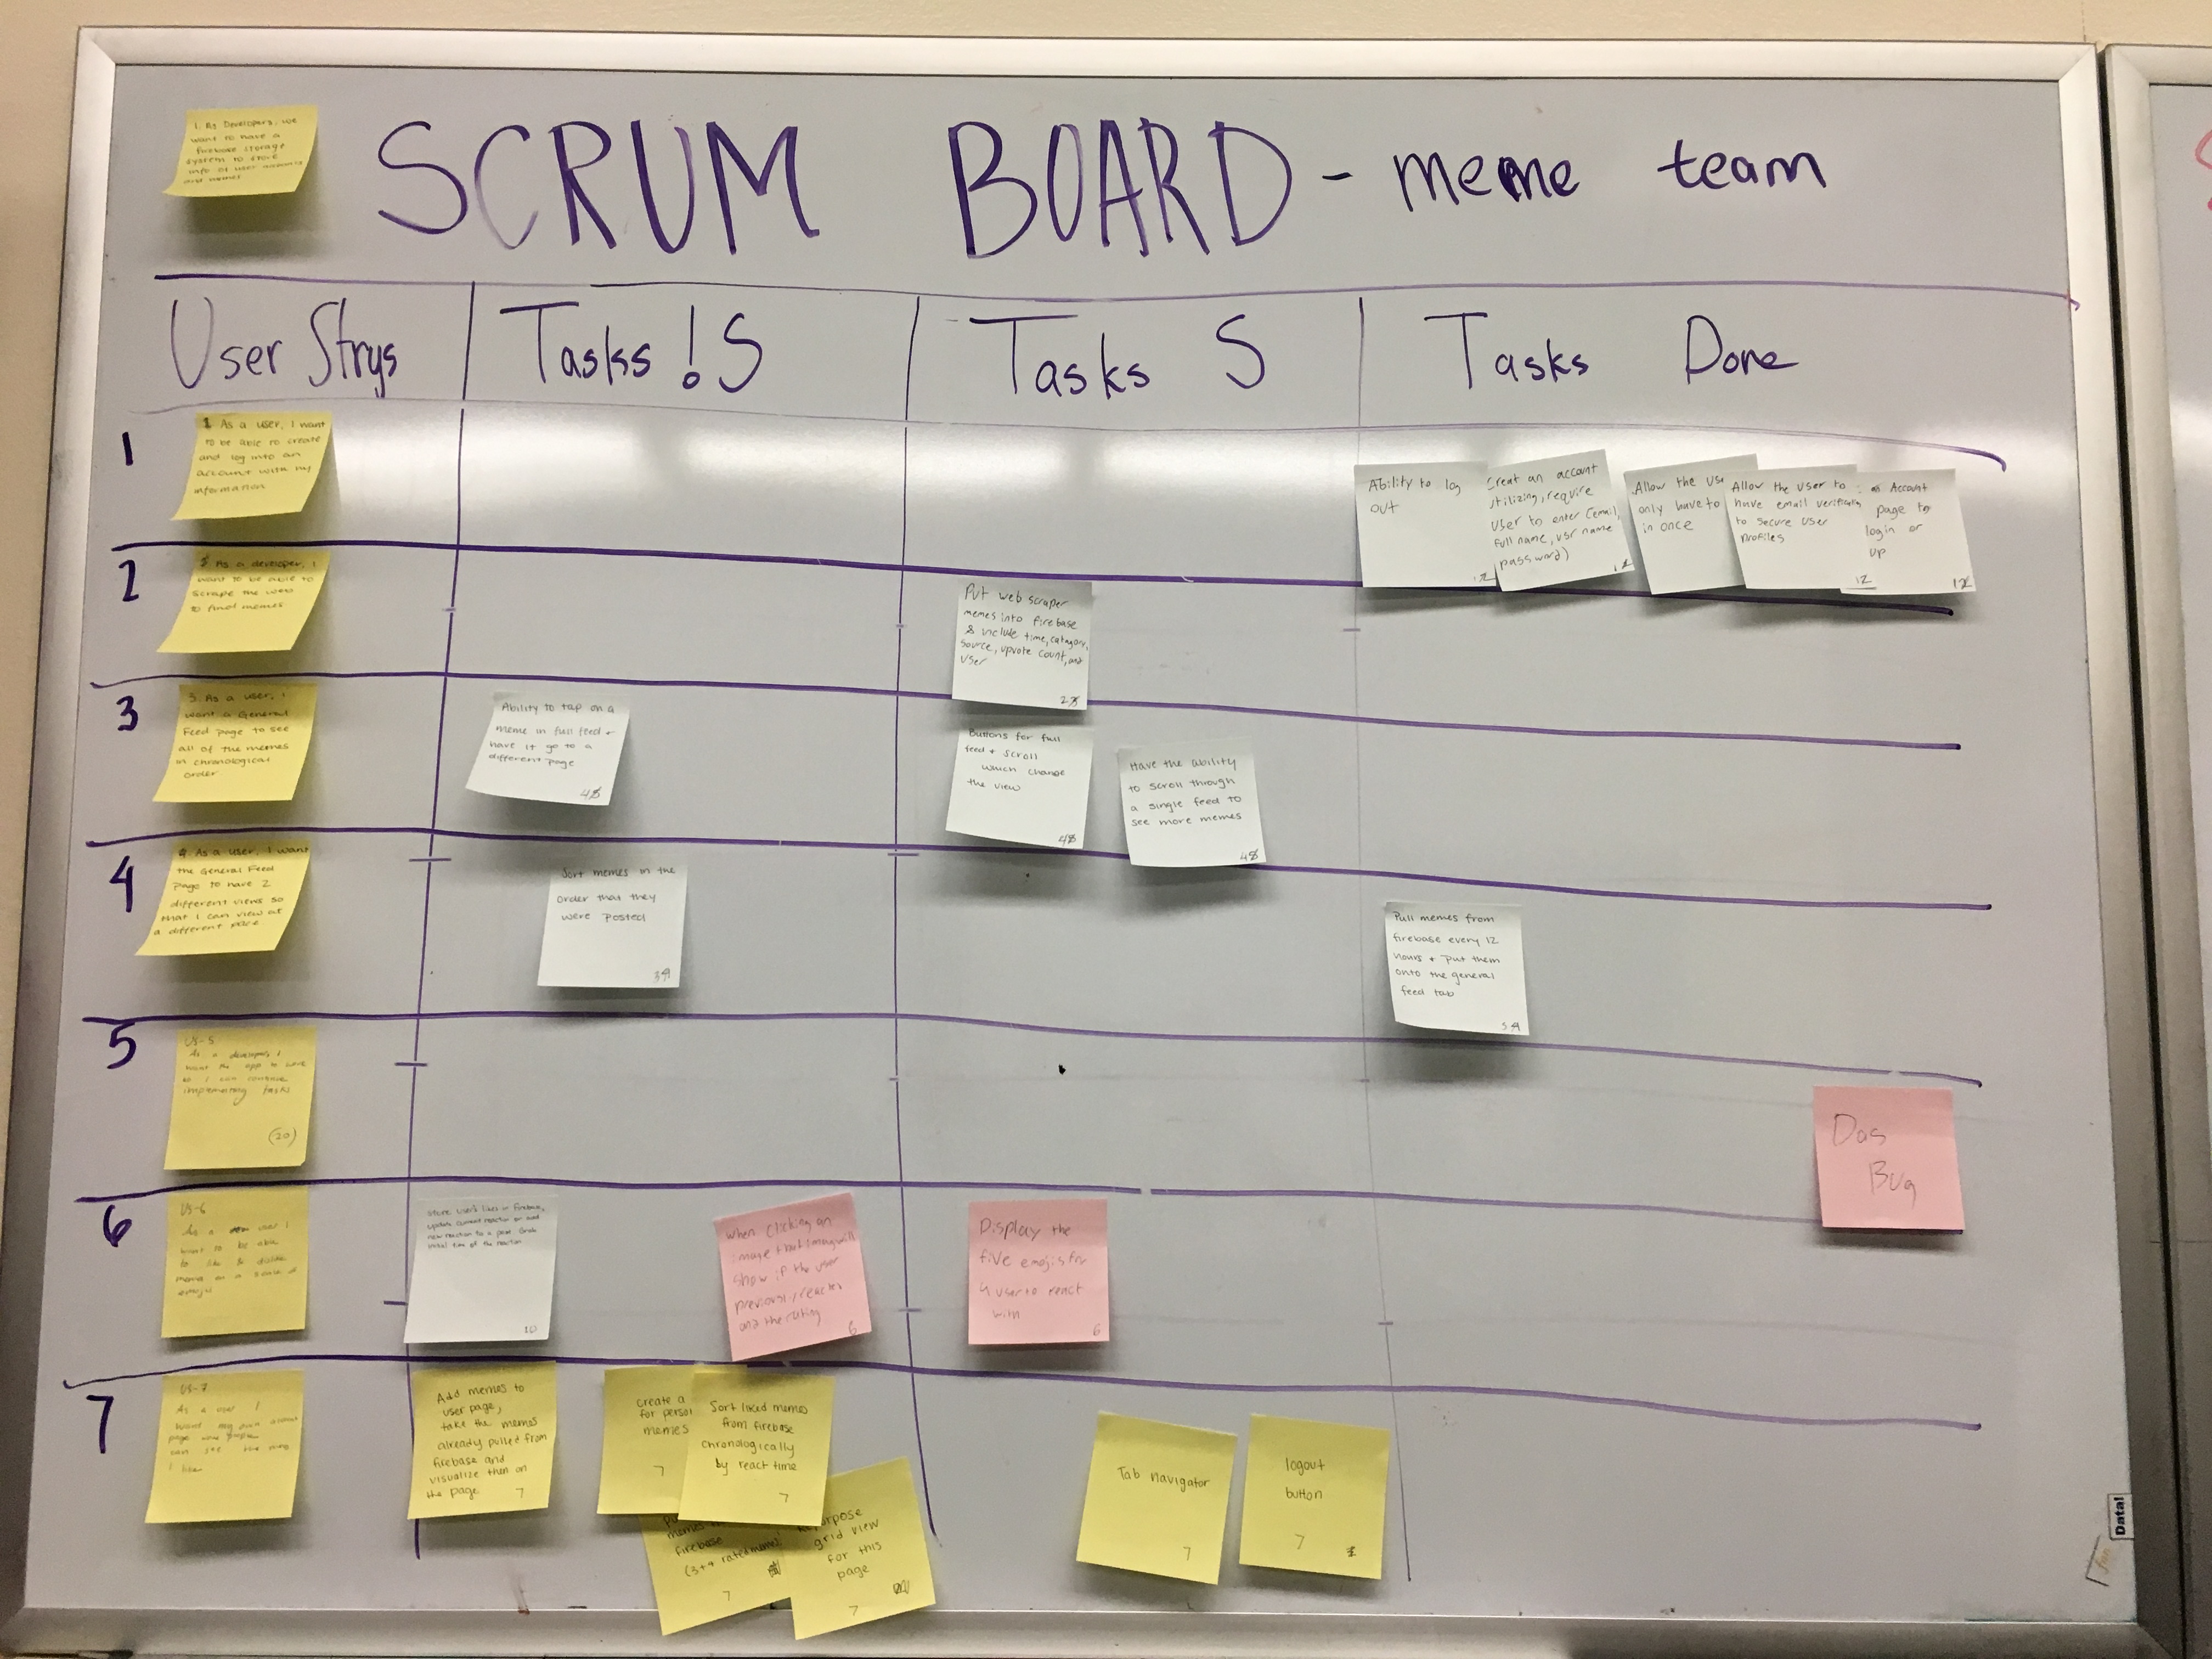 1. As Developers, we
want to have a
firebase storage
system to store
info of user accounts
and memes
SCRUM BOARD - meme team
User Strys
Tasks !S
Tasks S
Tasks Done
1
1 As a user, I want
to be able to create
and log into an
account with my
information
Ability to log
out
Creat an account
utilizing, require
user to enter (email,
full name, usr name
password)
Allow the use
only have to
in once
Allow the user to
have email verification
to secure user
profiles
12
Account
page to
login or
up
12
2
As a developer, I
want to be able to
scrape the web
to find memes
Put web scraper
memes into firebase
& include time, catagory,
source, upvote count, and
user
3
3. As a user, I
want a General
Feed page to see
all of the memes
in chronological
order
Ability to tap on a
meme in full feed +
have it go to a
different page
Buttons for full
feed + scroll
which change
the view
Have the ability
to scroll through
a single feed to
see more memes
4
4. As a user, I want
the General Feed
page to have 2
different views so
that I can view at
a different pace
Sort memes in the
order that they
were posted
Pull memes from
firebase every 12
hours + put them
onto the general
feed tab
5
US-5
As a developer I
want the app to work
so I can continue
implementing tasks
(20)
Das
Bug
6
US-6
As a user I
want to be able
to like & dislike
memes on a scale of
emojis
Store user's likes in firebase,
update current reaction or add
new reaction to a post. Grab
initial time of the reaction
10
When clicking an
image that imag will
show if the user
previously reacted
and the rating
6
Display the
five emojis for
a user to react
with
6
7
US-7
As a user I
want my own account
page
can see the memes
I like
Add memes to
user page,
take the memes
already pulled from
firebase and
visualize then on
the page 7
create a
for person
memes
7
Sort liked memes
from firebase
chronologically
by react time
7
memes
firebase
(3+4 rated memes)
7
grid view
for this
page
7
Tab navigator
7
logout
button
7
Data!